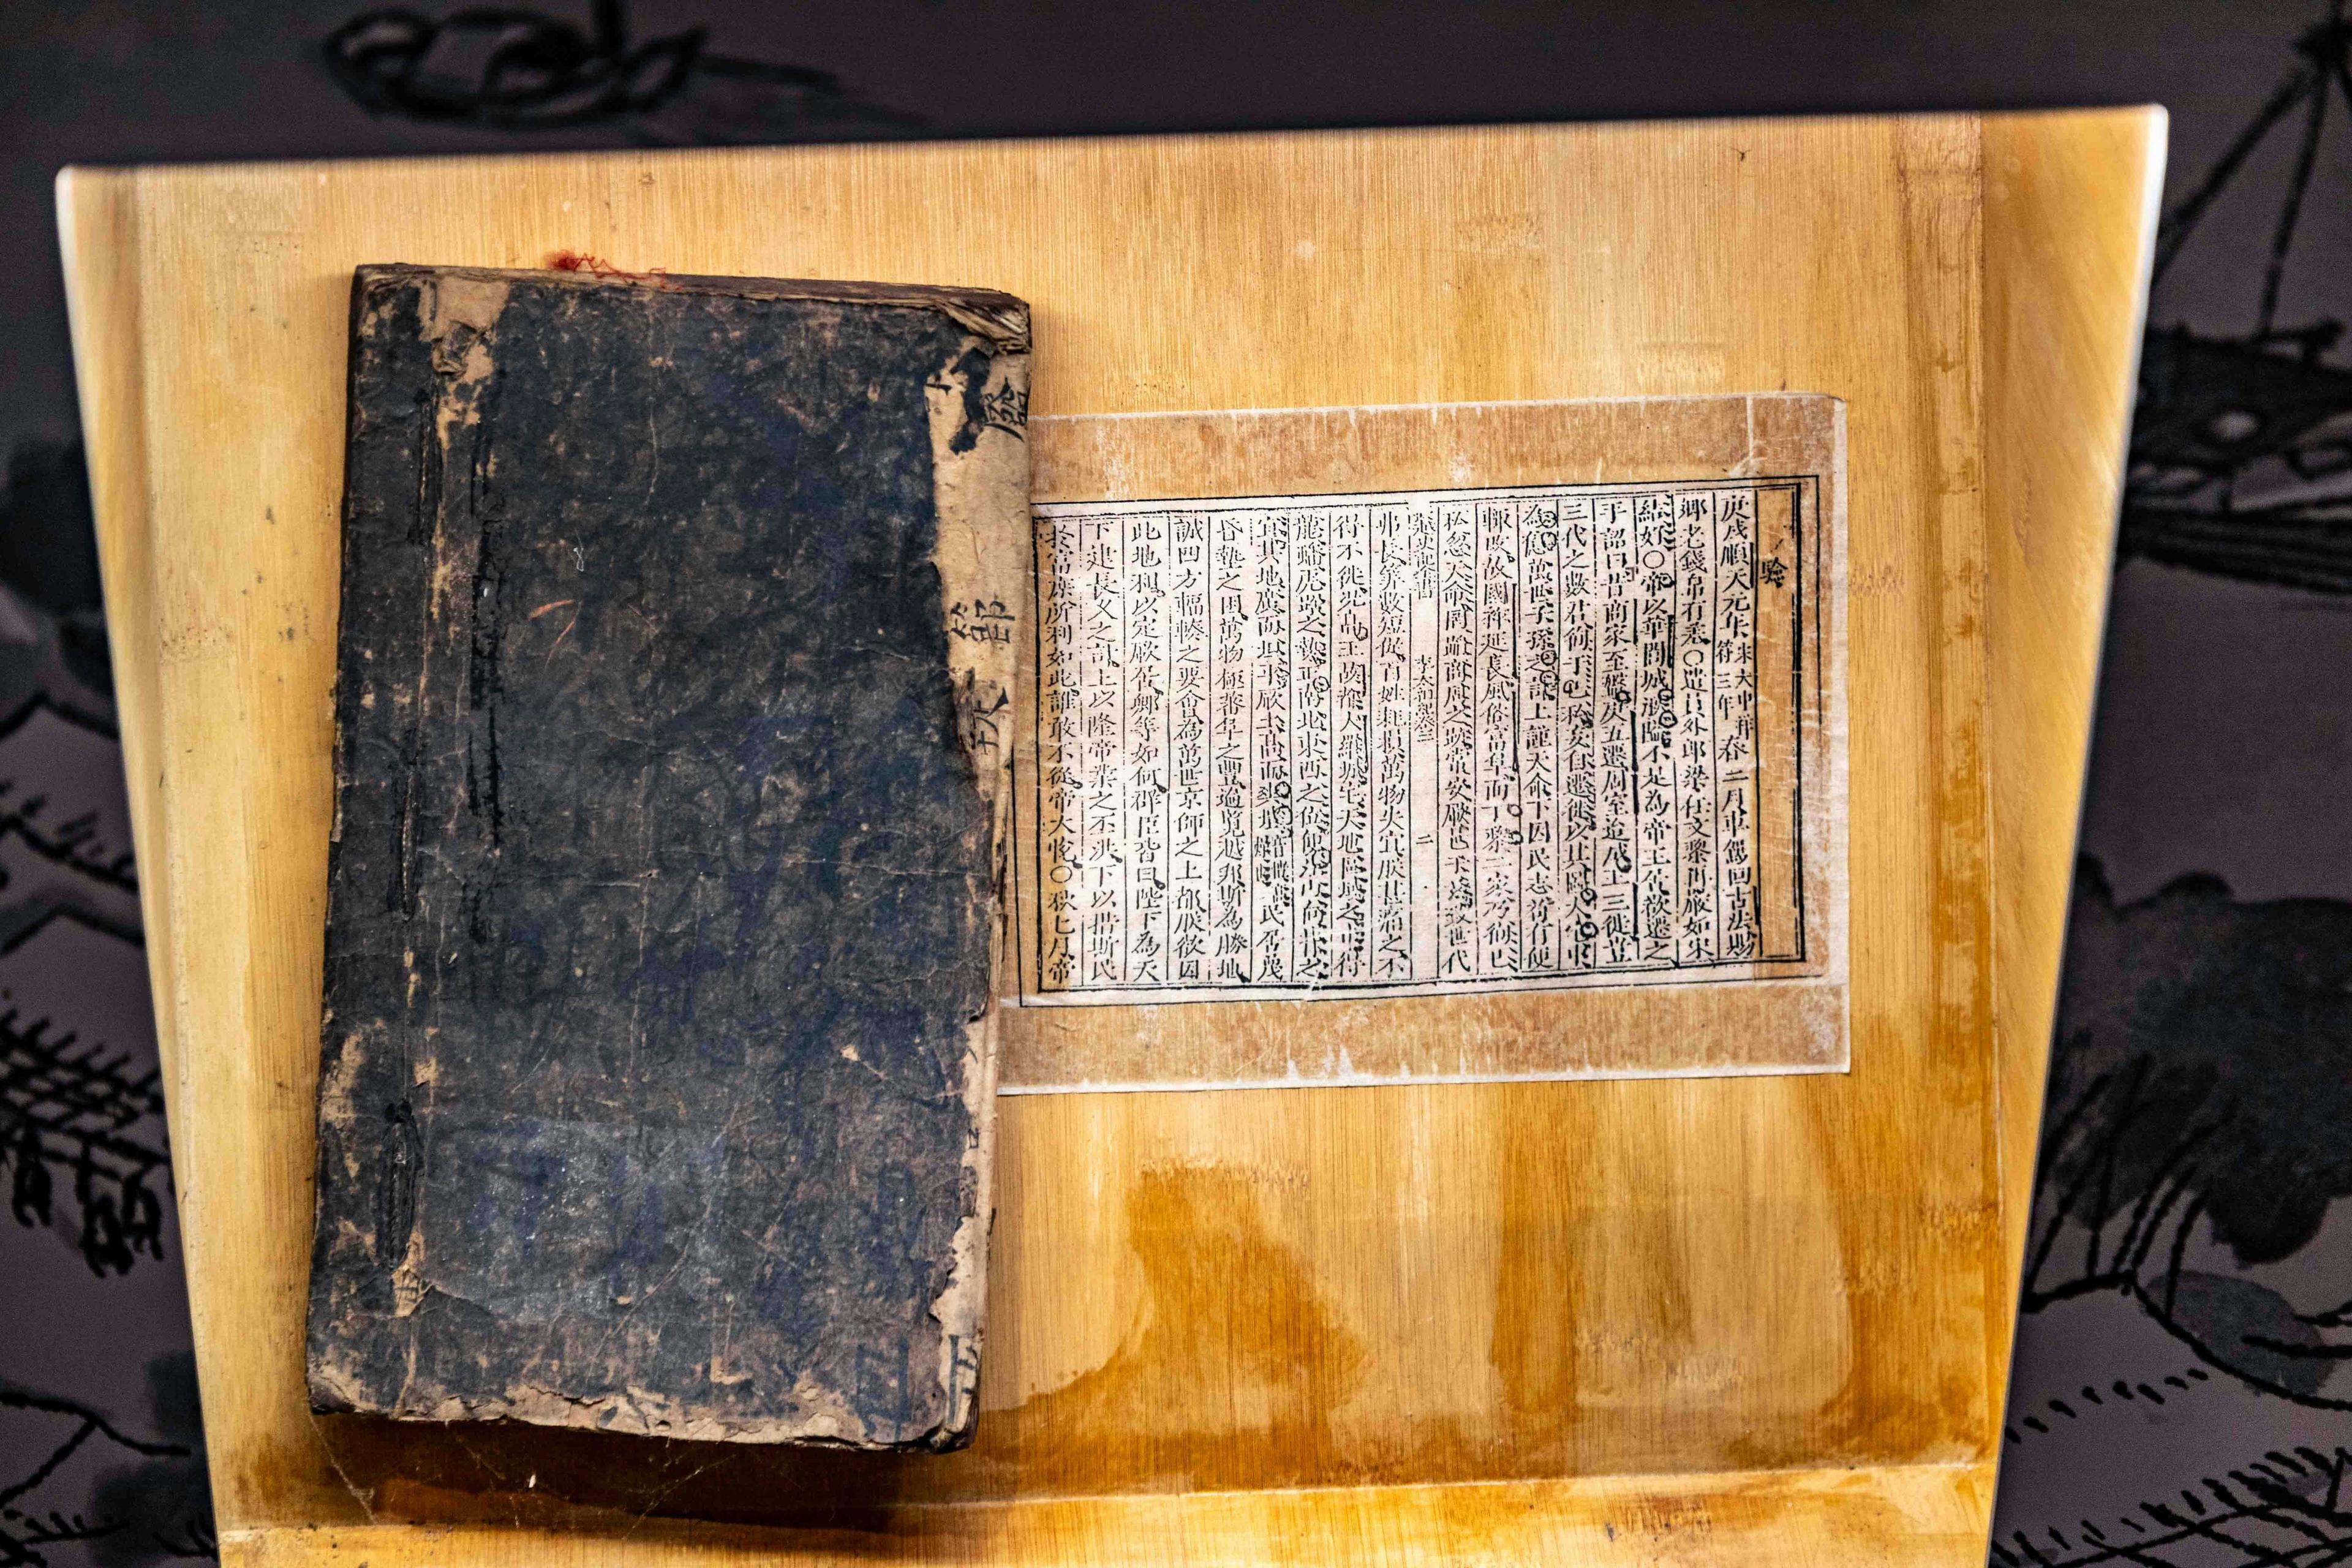 庚戌順天元年宋大中祥符三年春二月車駕回古法賜
鄉老錢帛有差〇遣員外郎梁任文黎再嚴如宋
結好〇帝以華閭城湫隘不足為帝王居欲遷之
手詔曰昔商家至盤庚五遷周室迨成王三徙豈
三代之數君徇于己私妄自遷徙以其圖大宅中
為億萬世子孫之計上謹天命下因民志苟有便
輒改故國祚延長風俗富阜而丁黎二家乃徇己
私忽天命罔蹈商周之跡常安厥邑于茲致世代
越史記全書 李太祖紀卷之二 二
弗長算數短促百姓耗損萬物失宜朕甚痛之不
得不徙況高王故都大羅城宅天地區域之中得
龍蟠虎踞之勢正南北東西之位便江山向背之
宜其地廣而坦平厥土高而爽塏民居蔑
昏墊之困萬物極蕃阜之豐遍覽越邦斯為勝地
誠四方輻輳之要會為萬世京師之上都朕欲因
此地利以定厥居卿等如何群臣皆曰陛下為天
下建長久之計上以隆帝業之丕洪下以措斯民
於富庶所利如此誰敢不從帝大悅〇秋七月帝